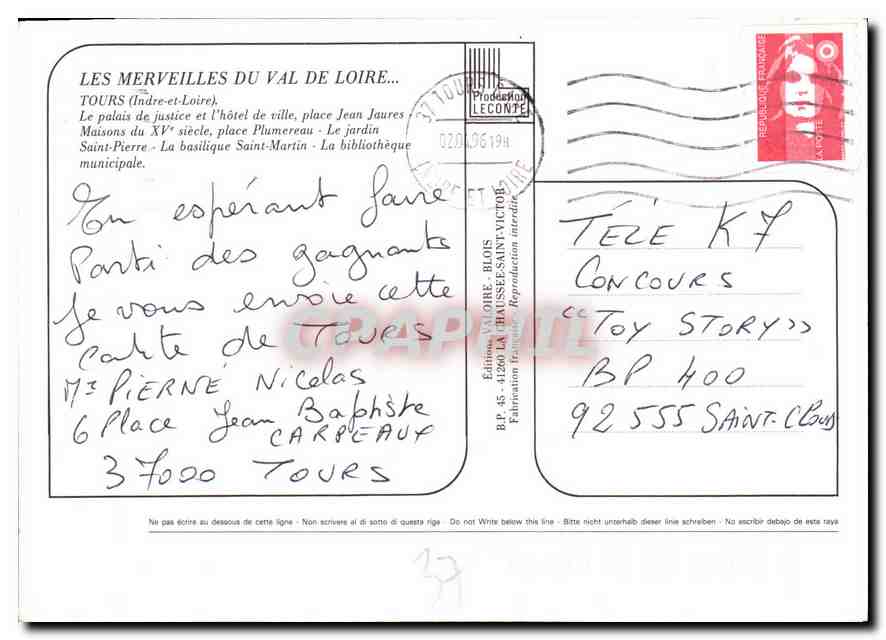 LES MERVEILLES DU VAL DE LOIRE...
TOURS (Indre-et-Loire).
Le palais de justice et l'hôtel de ville, place Jean Jaures -
Maisons du XVe siècle, place Plumereau - Le jardin
Saint-Pierre - La basilique Saint-Martin - La bibliothèque
municipale.
En espérant faire
Parti des gagnants
Je vous envoie cette
carte de TOURS
Mr PIERNÉ Nicolas
6 Place Jean Baptiste
CARPEAUX
37000 TOURS
Production
LECONTE
37 TOURS
96 19H
INDRE ET LOIRE
Éditions VALOIRE - BLOIS
B.P. 45 - 41260 LA CHAUSSÉE-SAINT-VICTOR
Fabrication française - Reproduction interdite
RÉPUBLIQUE FRANÇAISE
LA POSTE
TÉLÉ K7
CONCOURS
"TOY STORY»
BP 400
92 555 SAINT-CLOUD
Ne pas écrire au dessous de cette ligne - Non scrivere al di sotto di questa riga - Do not Write below this line - Bitte nicht unterhalb dieser linie schreiben - No escribir debajo de esta raya
37